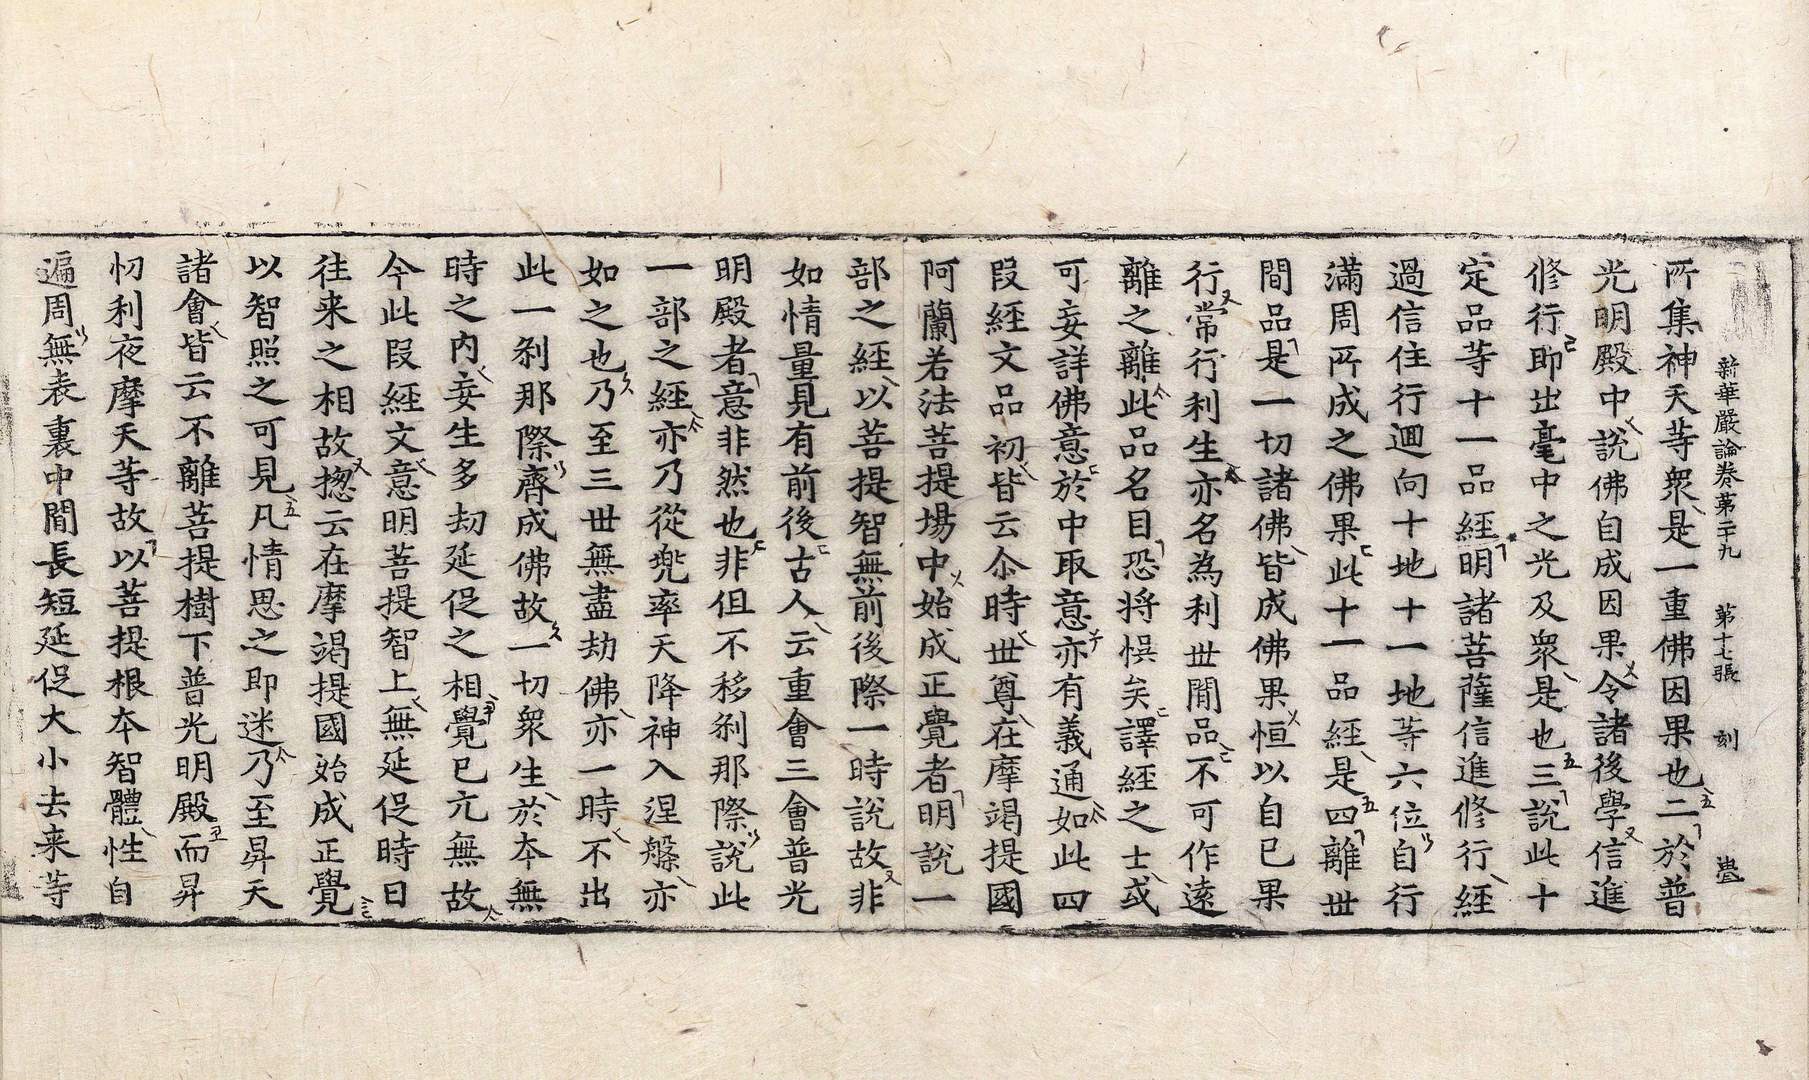 新華嚴論卷第二十九 第十七張 刻
所集神天等衆是一重佛因果也二於普
光明殿中說佛自成因果令諸後學信進
修行即出毫中之光及衆是也三說此十
定品等十一品經明諸菩薩信進修行經
過信住行迴向十地十一地等六位自行
滿周所成之佛果此十一品經是四離世
間品是一切諸佛皆成佛果恒以自已果
行常行利生亦名為利世間品不可作遠
離之離此品名目恐將悞矣譯經之士或
可妄詳佛意於中取意亦有義通如此四
段經文品初皆云尒時世尊在摩竭提國
阿蘭若法菩提場中始成正覺者明說一
部之經以菩提智無前後際一時說故非
如情量見有前後古人云重會三會普光
明殿者意非然也非但不移剎那際說此
一部之經亦乃從兠率天降神入涅槃亦
如之也乃至三世無盡劫佛亦一時不出
此一剎那際齊成佛故一切衆生於本無
時之內妄生多劫延促之相覺已亢無故
今此段經文意明菩提智上無延促時日
往来之相故揔云在摩竭提國始成正覺
以智照之可見凡情思之即迷乃至昇天
諸會皆云不離菩提樹下普光明殿而昇
忉利夜摩天等故以菩提根本智體性自
遍周無表裏中間長短延促大小去来等